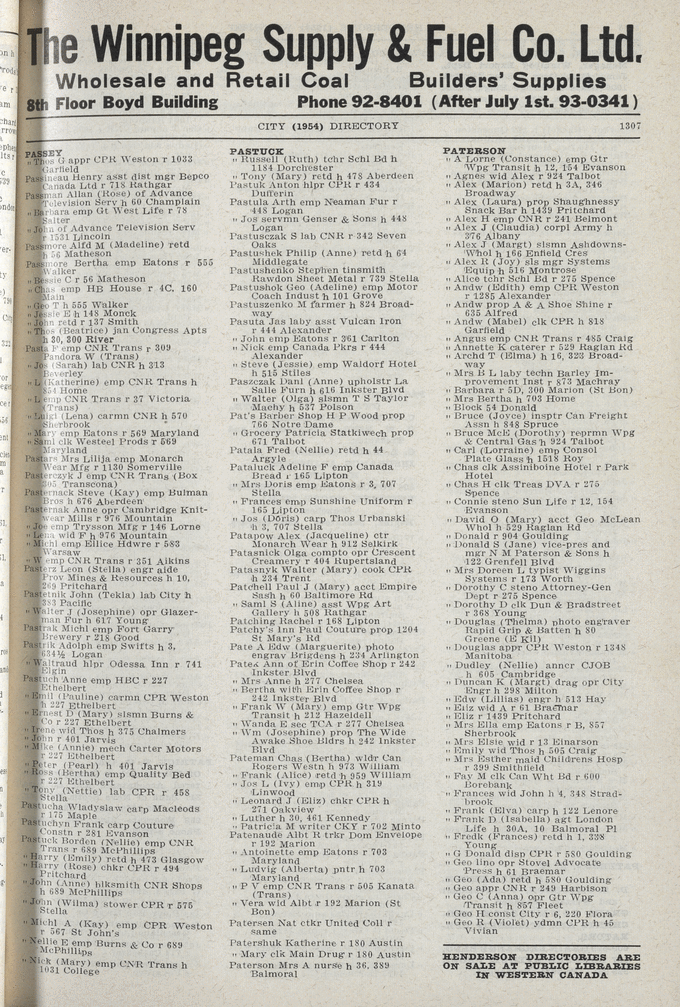 The Winnipeg Supply & Fuel Co. Ltd.
Wholesale and Retail Coal Builders' Supplies
8th Floor Boyd Building Phone 92-8401 (After July 1st. 93-0341)
CITY (1954) DIRECTORY 1307
PASSEY
" Thos G appr CPR Weston r 1033
Garfield
Passineau Henry asst dist mgr Bepco
Canada Ltd r 718 Rathgar
Passman Allan (Rose) of Advance
Television Serv h 60 Champlain
" Barbara emp Gt West Life r 78
Salter
" John of Advance Television Serv
r 1531 Lincoln
Passmore Alfd M (Madeline) retd
h 56 Matheson
Passmore Bertha emp Eatons r 555
Walker
" Bessie C r 56 Matheson
" Chas emp HB House r 4C, 160
Main
" Geo T h 555 Walker
" Jessie E h 148 Monck
" John retd r 37 Smith
" Thos (Beatrice) jan Congress Apts
h 30, 300 River
Pasta F emp CNR Trans r 309
Pandora W (Trans)
" Jos (Sarah) lab CNR h 313
Beverley
" L (Katherine) emp CNR Trans h
854 Home
" L emp CNR Trans r 37 Victoria
(Trans)
" Luigi (Lena) carmn CNR h 570
Sherbrook
" Mary emp Eatons r 569 Maryland
" Saml clk Westeel Prods r 569
Maryland
Pastars Mrs Lilija emp Monarch
Wear Mfg r 1130 Somerville
Pasterczyk J emp CNR Trans (Box
305 Transcona)
Pasternack Steve (Kay) emp Bulman
Bros h 676 Aberdeen
Pasternak Anne opr Cambridge Knit-
wear Mills r 976 Mountain
" Joe emp Trysson Mfg r 146 Lorne
" Lena wid F h 976 Mountain
" Michl emp Ellice Hdwre r 583
Warsaw
" W emp CNR Trans r 351 Aikins
Pasterz Leon (Stella) engr aide
Prov Mines & Resources h 10,
269 Pritchard
Pastetnik John (Tekla) lab City h
383 Pacific
" Walter J (Josephine) opr Glazer-
man Fur h 617 Young
Pastrak Michl emp Fort Garry
Brewery r 218 Good
Pastrik Adolph emp Swifts h 3,
634½ Logan
" Waltraud hlpr Odessa Inn r 741
Elgin
Pastuch Anne emp HBC r 227
Ethelbert
" Emil (Pauline) carmn CPR Weston
h 227 Ethelbert
" Ernest D (Mary) slsmn Burns &
Co r 227 Ethelbert
" Irene wid Thos h 375 Chalmers
" John r 401 Jarvis
" Mike (Annie) mech Carter Motors
r 227 Ethelbert
" Peter (Pearl) h 401 Jarvis
" Ross (Bertha) emp Quality Bed
r 227 Ethelbert
" Tony (Nettie) lab CPR r 458
Stella
Pastucha Wladyslaw carp Macleods
r 175 Maple
Pastuchyn Frank carp Couture
Constn r 281 Evanson
Pastuck Borden (Nellie) emp CNR
Trans r 689 McPhillips
" Harry (Emily) retd h 473 Glasgow
" Harry (Rose) chkr CPR r 494
Pritchard
" John (Anne) blksmith CNR Shops
h 689 McPhillips
" John (Wilma) stower CPR r 575
Stella
" Michl A (Kay) emp CPR Weston
r 567 St John's
" Nellie E emp Burns & Co r 689
McPhillips
" Nick (Mary) emp CNR Trans h
1031 College
PASTUCK
" Russell (Ruth) tchr Schl Bd h
1184 Dorchester
" Tony (Mary) retd h 478 Aberdeen
Pastuk Anton hlpr CPR r 434
Dufferin
Pastula Arth emp Neaman Fur r
448 Logan
" Jos servmn Genser & Sons h 448
Logan
Pastusczak S lab CNR r 342 Seven
Oaks
Pastushek Philip (Anne) retd h 64
Middlegate
Pastushenko Stephen tinsmith
Rawdon Sheet Metal r 739 Stella
Pastushok Geo (Adeline) emp Motor
Coach Indust h 101 Grove
Pastuszenko M farmer h 824 Broad-
way
Pasuta Jas laby asst Vulcan Iron
r 444 Alexander
" John emp Eatons r 361 Carlton
" Nick emp Canada Pkrs r 444
Alexander
" Steve (Jessie) emp Waldorf Hotel
h 515 Stiles
Paszczak Danl (Anne) upholstr La
Salle Furn h 616 Inkster Blvd
" Walter (Olga) slsmn T S Taylor
Machy h 537 Polson
Pat's Barber Shop H P Wood prop
766 Notre Dame
" Grocery Patricia Statkiwech prop
671 Talbot
Patala Fred (Nellie) retd h 44
Argyle
Pataluck Adeline F emp Canada
Bread r 165 Lipton
" Mrs Doris emp Eatons r 3, 707
Stella
" Frances emp Sunshine Uniform r
165 Lipton
" Jos (Doris) carp Thos Urbanski
h 3, 707 Stella
Patapow Alex (Jacqueline) ctr
Monarch Wear h 912 Selkirk
Patasnick Olga compto opr Crescent
Creamery r 404 Rupertsland
Patasnyk Walter (Mary) cook CPR
h 234 Trent
Patchell Paul J (Mary) acct Empire
Sash h 60 Baltimore Rd
" Saml S (Aline) asst Wpg Art
Gallery h 508 Rathgar
Patching Rachel r 168 Lipton
Patchy's Inn Paul Couture prop 1204
St Mary's Rd
Pate A Edw (Marguerite) photo
engrav Brigdens h 234 Arlington
Patek Ann of Erin Coffee Shop r 242
Inkster Blvd
" Mrs Anne h 277 Chelsea
" Bertha with Erin Coffee Shop r
242 Inkster Blvd
" Frank W (Mary) emp Gtr Wpg
Transit h 212 Hazeldell
" Wanda E sec TCA r 277 Chelsea
" Wm (Josephine) prop The Wide
Awake Shoe Bldrs h 242 Inkster
Blvd
Pateman Chas (Bertha) wldr Can
Rogers Westn h 973 William
" Frank (Alice) retd h 959 William
" Jos L (Ivy) emp CPR h 319
Linwood
" Leonard J (Eliz) chkr CPR h
271 Oakview
" Luther h 30, 461 Kennedy
" Patricia M writer CKY r 702 Minto
Patenaude Albt R trkr Dom Envelope
r 192 Marion
" Antoinette emp Eatons r 703
Maryland
" Ludvig (Alberta) pntr h 703
Maryland
" P V emp CNR Trans r 505 Kanata
(Trans)
" Vera wid Albt r 192 Marion (St
Bon)
Patersen Nat ctkr United Coll r
same
Patershuk Katherine r 180 Austin
" Mary clk Main Drug r 180 Austin
Paterson Mrs A nurse h 36, 389
Balmoral
PATERSON
" A Lorne (Constance) emp Gtr
Wpg Transit h 12, 154 Evanson
" Agnes wid Alex r 924 Talbot
" Alex (Marion) retd h 3A, 346
Broadway
" Alex (Laura) prop Shaughnessy
Snack Bar h 1439 Pritchard
" Alex H emp CNR r 241 Belmont
" Alex J (Claudia) corpl Army h
376 Albany
" Alex J (Margt) slsmn Ashdowns-
Whol h 166 Enfield Cres
" Alex R (Joy) sls mgr Systems
Equip h 516 Montrose
" Alice tchr Schl Bd r 275 Spence
" Andw (Edith) emp CPR Weston
r 1285 Alexander
" Andw prop A & A Shoe Shine r
635 Alfred
" Andw (Mabel) clk CPR h 818
Garfield
" Angus emp CNR Trans r 485 Craig
" Annette K caterer r 529 Raglan Rd
" Archd T (Elma) h 16, 323 Broad-
way
" Mrs B L laby techn Barley Im-
provement Inst r 873 Machray
" Barbara r 5D, 300 Marion (St Bon)
" Mrs Bertha h 703 Home
" Block 54 Donald
" Bruce (Joyce) insptr Can Freight
Assn h 848 Spruce
" Bruce McE (Dorothy) reprmn Wpg
& Central Gas h 924 Talbot
" Carl (Lorraine) emp Consol
Plate Glass h 1518 Roy
" Chas clk Assiniboine Hotel r Park
Hotel
" Chas H clk Treas DVA r 275
Spence
" Connie steno Sun Life r 12, 154
Evanson
" David O (Mary) acct Geo McLean
Whol h 529 Raglan Rd
" Donald r 904 Goulding
" Donald S (Jane) vice-pres and
mgr N M Paterson & Sons h
122 Grenfell Blvd
" Mrs Doreen L typist Wiggins
Systems r 173 Worth
" Dorothy C steno Attorney-Gen
Dept r 275 Spence
" Dorothy D clk Dun & Bradstreet
r 368 Young
" Douglas (Thelma) photo engraver
Rapid Grip & Batten h 80
Greene (E Kil)
" Douglas appr CPR Weston r 1348
Manitoba
" Dudley (Nellie) anncr CJOB
h 605 Cambridge
" Duncan K (Margt) drag opr City
Engr h 298 Milton
" Edw (Lillias) engr h 513 Hay
" Eliz wid A r 61 Braemar
" Eliz r 1439 Pritchard
" Mrs Ella emp Eatons r B, 857
Sherbrook
" Mrs Elsie wid r 13 Einarson
" Emily wid Thos h 505 Craig
" Mrs Esther maid Childrens Hosp
r 399 Smithfield
" Fay M clk Can Wht Bd r 600
Borebank
" Frances wid John h 4, 348 Strad-
brook
" Frank (Elva) carp h 122 Lenore
" Frank D (Isabella) agt London
Life h 30A, 10 Balmoral Pl
" Fredk (Frances) retd h 1, 338
Young
" G Donald disp CPR r 580 Goulding
" Geo lino opr Stovel Advocate
Press h 61 Braemar
" Geo (Ada) retd h 580 Goulding
" Geo appr CNR r 249 Harbison
" Geo C (Anna) opr Gtr Wpg
Transit h 857 Fleet
" Geo H const City r 6, 220 Flora
" Geo R (Violet) ydmn CPR h 45
Vivian
HENDERSON DIRECTORIES ARE
ON SALE AT PUBLIC LIBRARIES
IN WESTERN CANADA